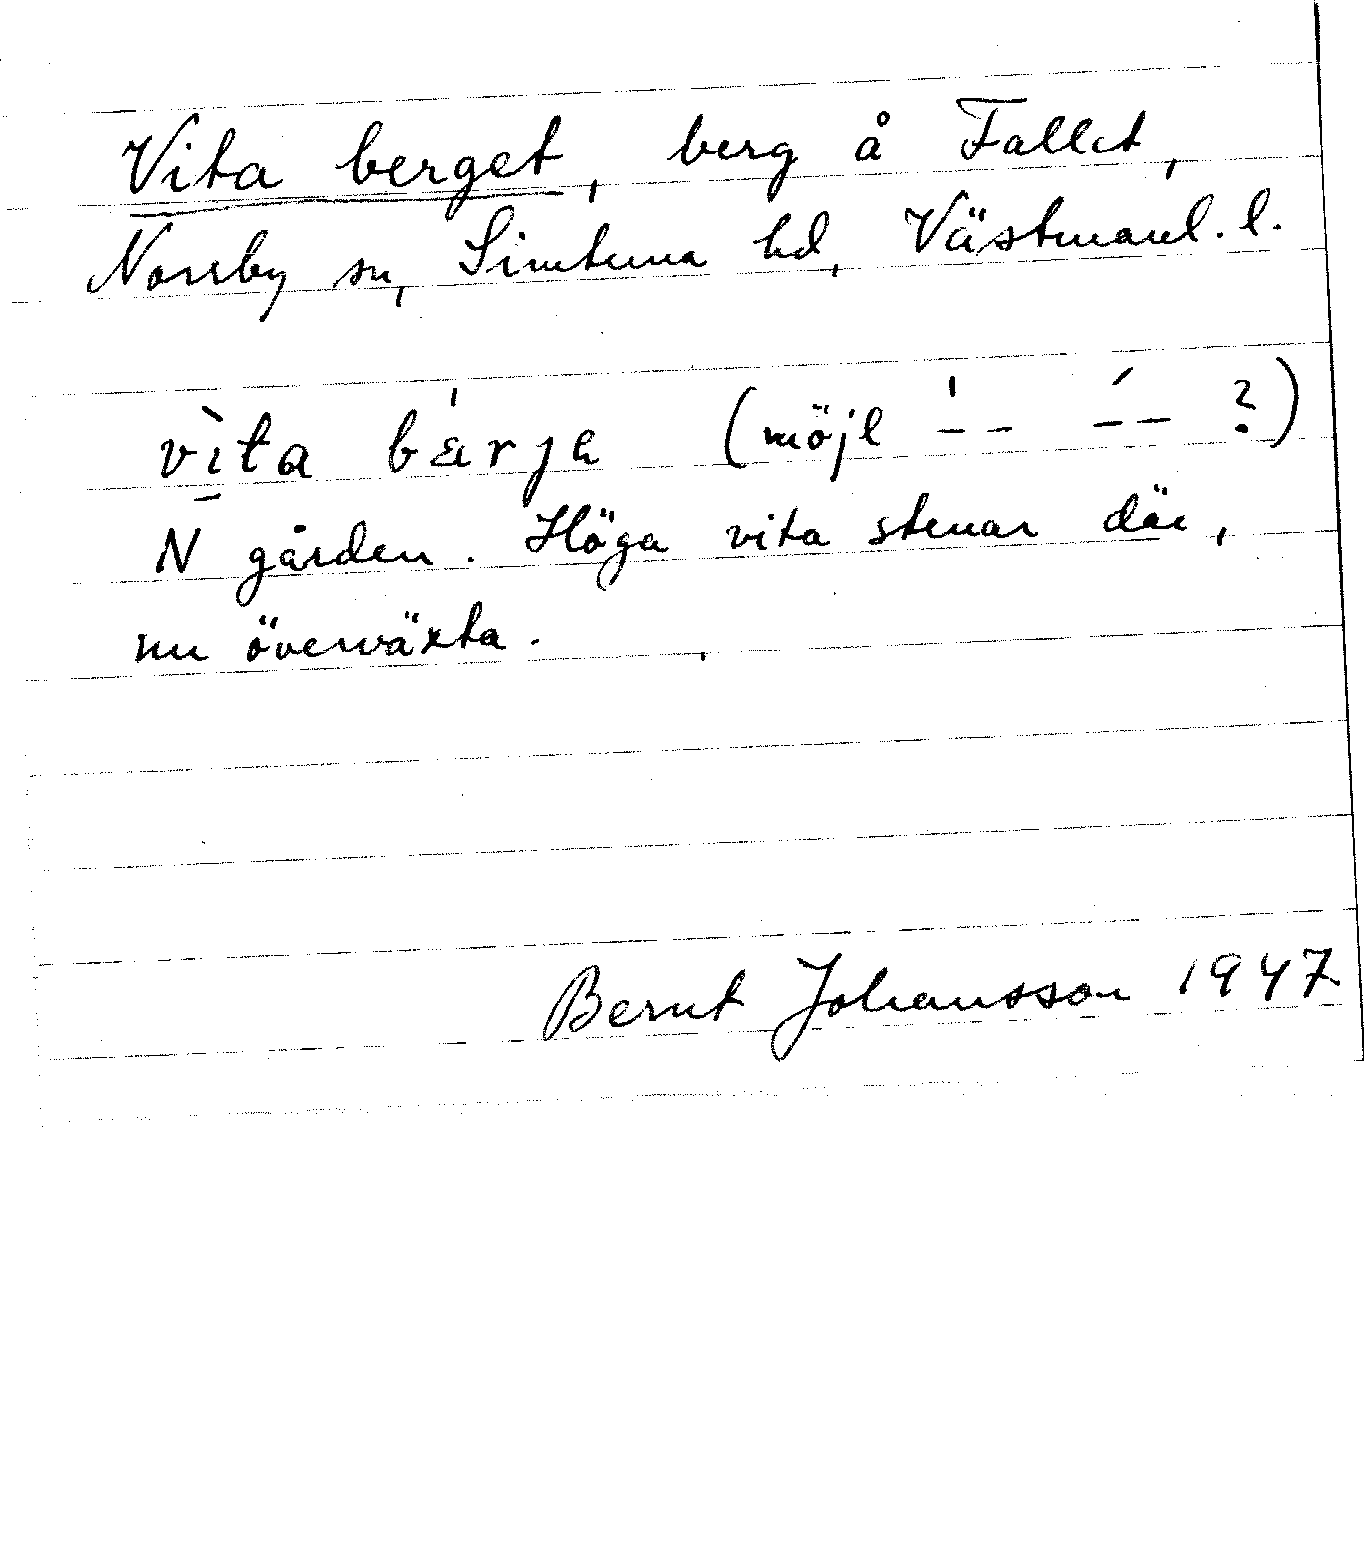 Vita berget, berg å Fallet,
Norrby sn, Simtuna hd, Västmanl. l.
vìta bɛ́rjɐ (möjl '-- ´-- ?)
N gården. Höga vita stenar där,
nu övervä­xta.
Bernt Johansson 1947